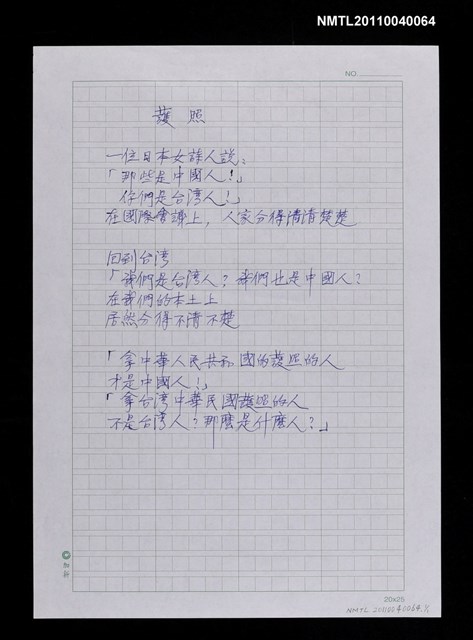 NMTL20110040064
NO.
護照
一位日本女詩人說：
「那些是中國人！」
你們是台湾人！」
在國際會議上，人家分得清清楚楚
回到台湾
「我們是台湾人？我們也是中國人？
在我們的本土上
居然分得不清不楚
「拿中華人民共和國的護照的人
才是中國人！」
「拿台湾中華民國護照的人
不是台湾人？那麼是什麼人？」
20x25
NMTL 20110040064